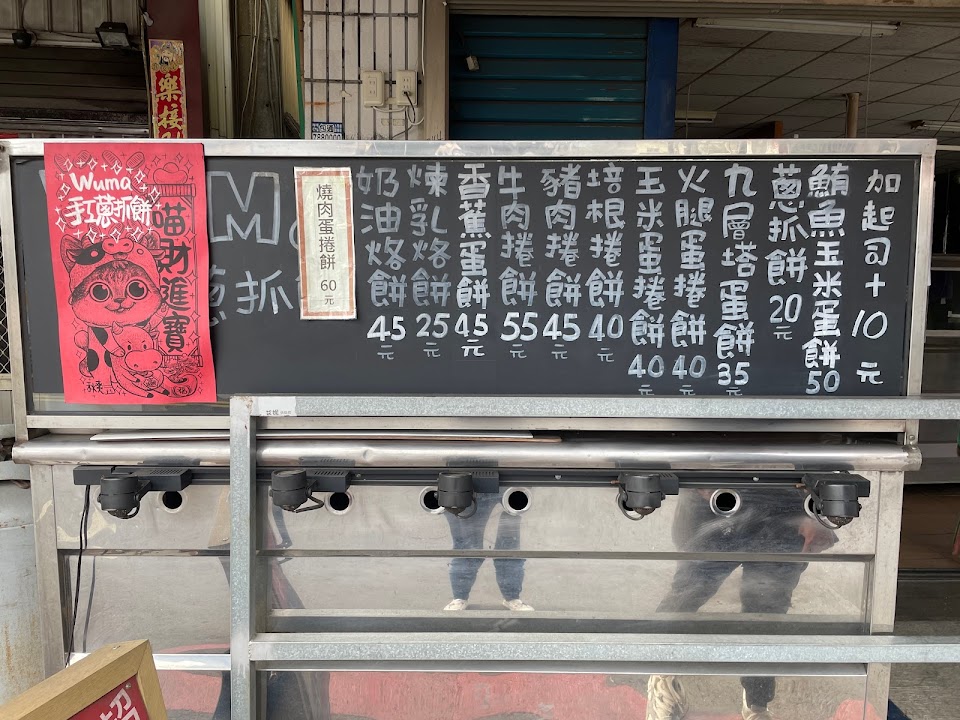 加起司+10元
鮪魚玉米蛋餅50
蔥抓餅20元
九層塔蛋餅35元
火腿蛋捲餅40元
玉米蛋捲餅40元
培根捲餅40元
豬肉捲餅45元
牛肉捲餅55元
香蕉蛋餅45元
煉乳烙餅25元
奶油烙餅45元
燒肉蛋捲餅 60元
M
蔥抓
Wuma
手工蔥抓餅
喵財進寶
樂接